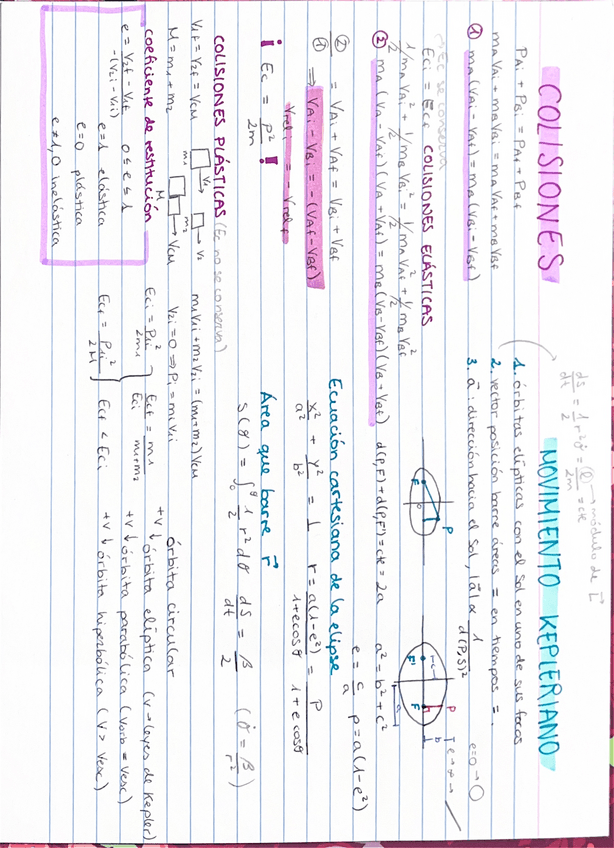 COLISIONES
PAi + PBi = PAf + PBf
mA VAi + mB VBi = mA VAf + mB VBf
① mA (VAi - VAf) = mA (VBi - VBf)
Ec se conserva
Eci = Ecf COLISIONES ELÁSTICAS
1/2 mA VAi² + 1/2 mB VBi² = 1/2 mA VAf² + 1/2 mB VBf²
② mA (VA - VAf)(VA + VAf) = mB (VB - VBf)(VB + VBf)
②/① = VAi + VAf = VBi + VBf
⇒ VAi - VBi = -(VAf - VBf)
Vreli = - Vrelf
¡ Ec = p²/2m !
COLISIONES PLÁSTICAS (Ec no se conserva)
V1f = V2f = VCM
M = m1 + m2
m1 V1 m2 V2
M VCM
m1V1i + m2V2i = (m1+m2) VCM
V2i = 0 ⇒ Pi = m1V1i
coeficiente de restitución
e = V2f - V1f / -(V2i - V1i) 0 ≤ e ≤ 1
e = 1 elástica
e = 0 plástica
e ≠ 1,0 inelástica
Eci = P1i²/2m1
Ecf = P1i²/2M
Ecf/Eci = m1/m1+m2
Ecf < Eci
MOVIMIENTO KEPLERIANO
dS/dt = 1/2 r² θ̇ = ℓ/2m = cte
módulo de L⃗
1. órbitas elípticas con el sol en uno de sus focos
2. vector posición barre áreas = en tiempos =.
3. a⃗: dirección hacia el sol, |a⃗| ∝ 1/d(P,S)²
e=0 → ○
e → ∞ →
F O P
F' F P
c a b
d(P,F) + d(P,F') = cte = 2a
a² = b² + c²
e = c/a p = a(1-e²)
Ecuación cartesiana de la elipse
x²/a² + y²/b² = 1 r = a(1-e²)/1+ecosθ = p/1+ecosθ
Área que barre r⃗
S(θ) = ∫₀^θ 1/2 r² dθ dS/dt = β/2 (θ̇ = β/r²)
órbita circular
+v ↓ órbita elíptica (v → leyes de Kepler)
+v ↓ órbita parabólica (Vorb = Vesc)
+v ↓ órbita hiperbólica (V > Vesc)